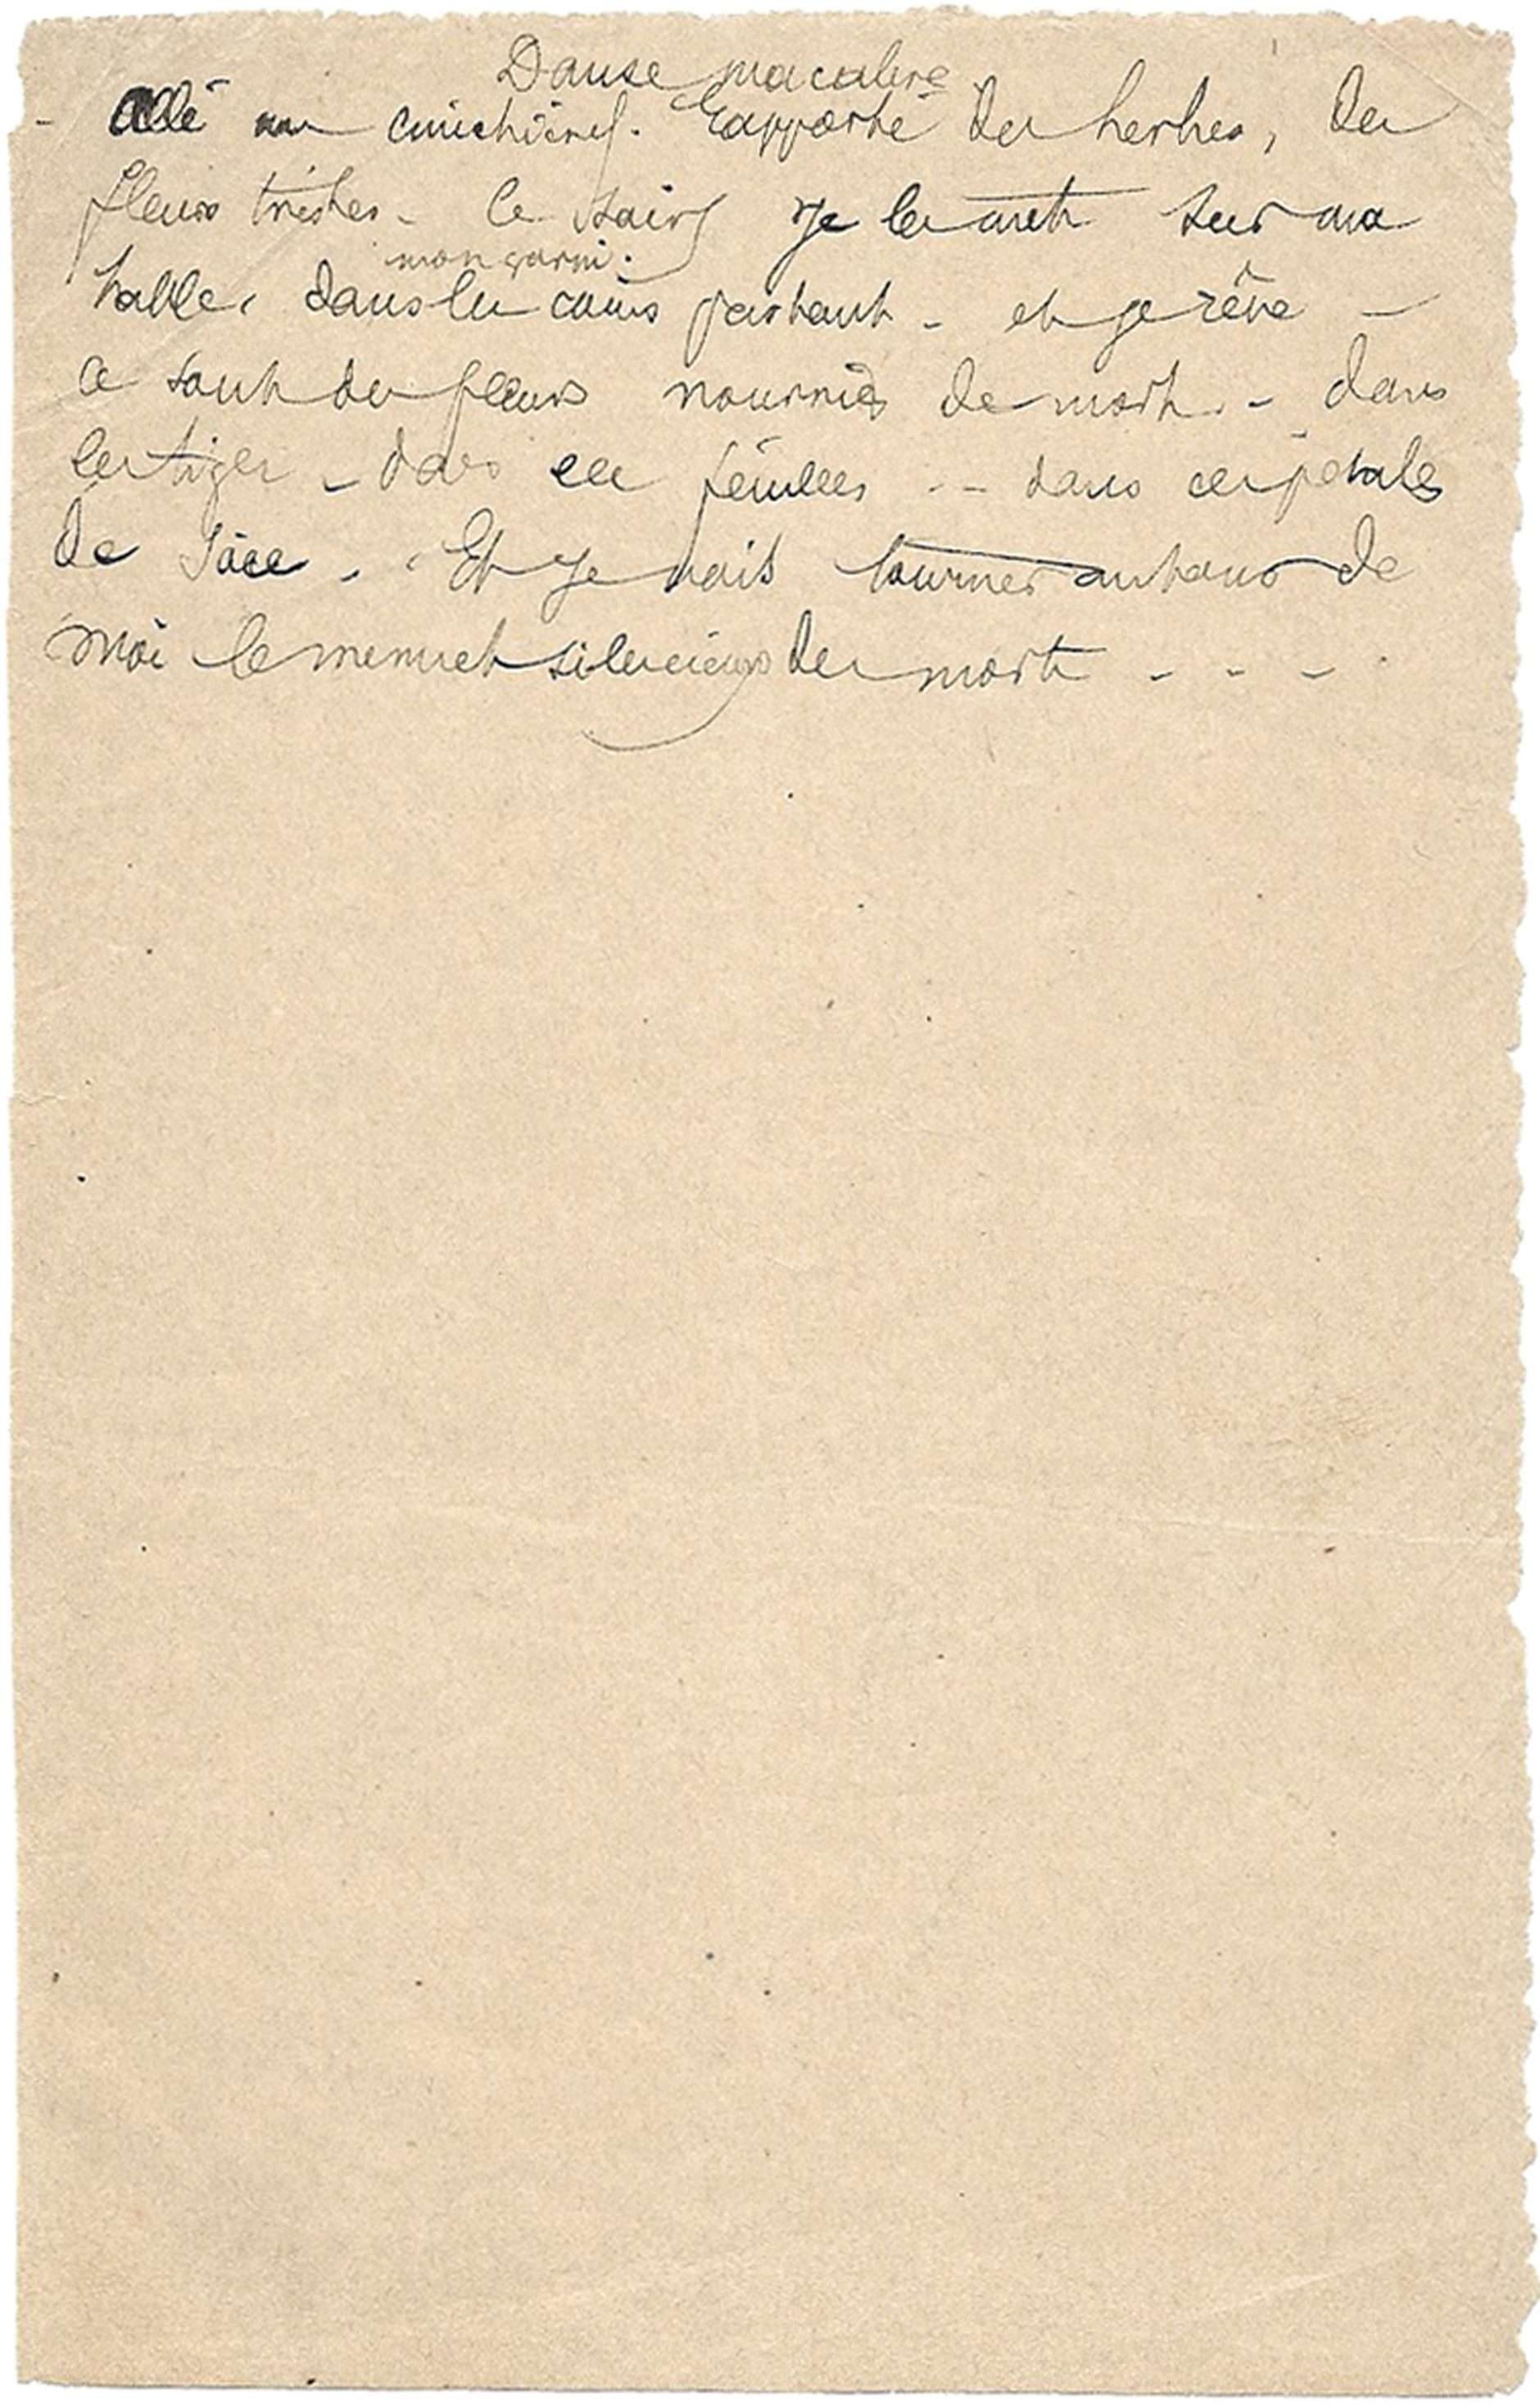 Danse macabre
- Allé au cimetière. Rapporté des herbes, des
fleurs tristes - Ce soir je les mets sur ma
mon garni.
table, dans les coins partout - et je rêve -
Ce sont des fleurs nourries de mort. - dans
les tiges - dans les feuilles -- dans ces pétales
de . Et je vois tourner autour de
moi le menuet silencieux des morts - - -